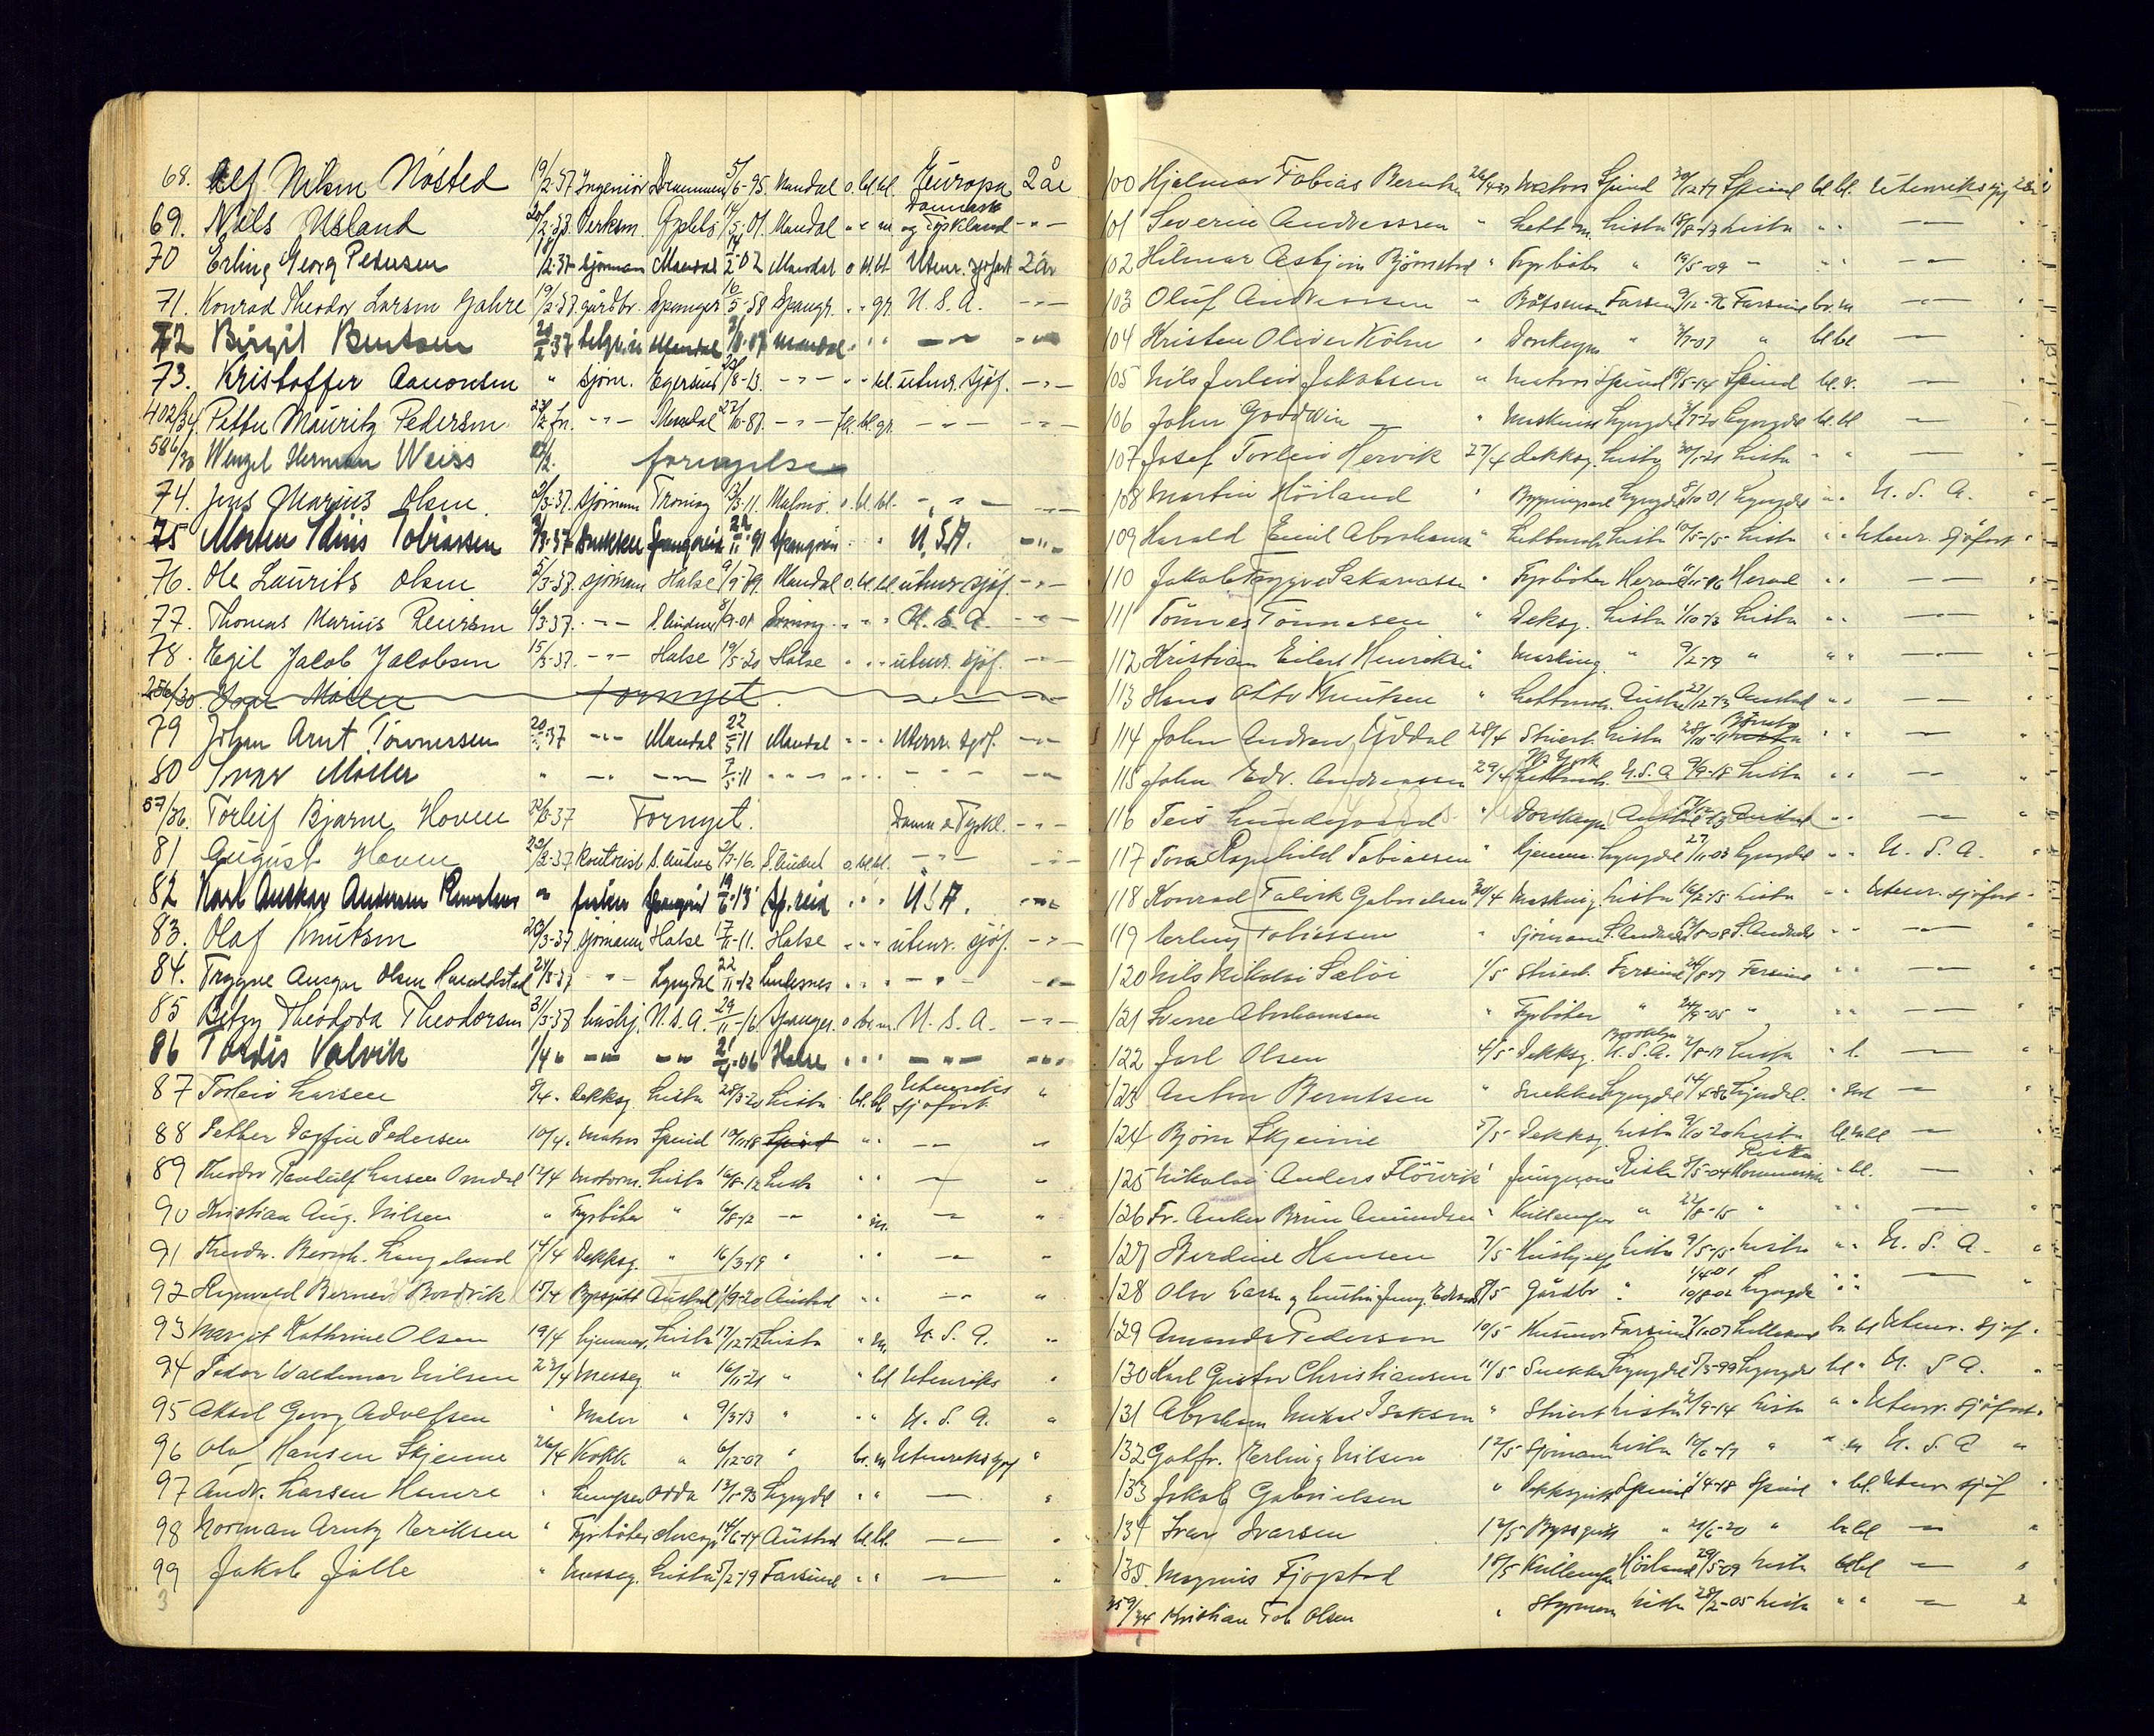 68. Alf Nilsen Nösted 19/2-37 Ingeniör Drammen 5/6-95 Mandal o. bl. bl. Europa 2 år
69. Nils Usland 20/2-33 Verksm. 14/5-01 Mandal " " m Danmark og Tyskland -"-
70 Erling Georg Pedersen 2-37 Sjömann Mandal 14/2-02 Mandal o. bl. bl. Utenr. sjöfart 2 år
71. Konrad Theodor Larsen Jahre 19/2-37. gårdbr. Spanger 16/5-58 Spangr. " " gr. U.S.A. -"-
72 Birgit Bentsen 20/2 37 Mandal 07 Mandal " " " -"- -"-
73. Kristoffer Aanonsen " sjöm. Egersund /8-13. -"- " " bl. utenr. sjöf. -"-
402/34. Petter Mauritz Pedersen 23/2 fn. -"- Mandal 22/10-87. -"- bl. gr. -"- -"-
586/30 Wenzel Herman Weiss /2. fornyelse
74. Jens Marius Olsen 2/3-37. sjömann Tromöy 13/3-11. Malmö. o. bl. bl. -"- -"-
75 Morten Idius Tobiassen 3/3-37 Snekker Spangereid 22/11-91 Spangereid " " " U.S.A. -"-
76. Ole Laurits Olsen 5/3-37. sjömann Halse 9/9-79. Mandal o. bl. bl. utenr. sjöf. -"-
77. Thomas Marius Reiersen 6/3-37. -"- S. Audnes 8/9-01 " " " U.S.A. -"-
78. Egil Jacob Jacobsen 15/3-37. -"- Halse 19/5-20 Halse " " " utenr. sjöf. -"-
256/30. Ivar Möller Fornyet.
79 Johan Arnt Tönnessen 20/3-37 -"- Mandal 22/5-11 Mandal " " " Utenr. sjöf. -"-
80 Ivar Möller " -"- -"- 7/5-11 -"- -"- -"-
57/36. Torleif Bjarne Hoven 22/3-37 Fornyet. Danm. & Tyskl. -"-
81 August Hoven 23/3-37 Kontorist S. Audnes 2/7-16. S. Audnes o. bl. bl. -"- -"-
82 Karl Anskar Andersen " fisker Spangereid 19/6-13 Sp.reid " " " USA. -"-
83. Olaf Knutsen 23/3-37. sjömann Halse 17/11-11. Halse " " " utenr. sjöf. -"-
84. Trygve Ansgar Olsen Haraldstad 24/3-37 -"- Lyngdal 22/11-12 Lindesnes " " " -"- -"-
85 Betzy Theodora Theodorsen 31/3-37 hushj. U.S.A. 29/11-16. Spanger. o. br. m. U.S.A. -"-
86 Tordis Valvik 1/4 " -"- -"- 21/4-06 Halse " " " -"- -"-
87 Torleiv Larsen 8/4. Dekksg. Lista 28/3-20 Lista bl. bl. Utenriks sjöfart "
88 Petter Dagfin Pedersen 10/4. Matros Spind 10/1-18 Spind " " — "
89 Theodor Randulf Larsen Omdal 12/4 Motorm. Lista 16/8-12 Lista " " — "
90 Kristian Aug. Nilsen " Fyrböter " 6/8-12 — " m. — "
91 Theodor Bernh. Langeland 14/4 Dekksg. " 16/3-19 " " " — "
92 Reynwald Berner Bordvik 15/4 Byssgutt Austad 1/9-20 Austad " " — "
93 Margit Kathrine Olsen 19/4 hjemmev. Lista 17/12-12 Lista " m. U.S.A. "
94 Peder Waldemar Nilsen 22/4 Messeg. " 16/11-21 " " bl Utenriks "
95 Aksel Georg Adolfsen " Maler " 9/3-13 " " " U.S.A. "
96 Olaf Hansen Skjenne 26/4 Kokk " 6/12-07 " br. m Utenriks sjöf "
97 Andr. Larsen Hamre " Lemper Odda 13/1-93 Lyngdal " " — "
98 Norman Arntz Eriksen " Fyrböter 14/6-14 Austad bl. bl. — "
99 Jakob Jölle " Messeg. Lista 5/2-19 Farsund " " — "
3
100 Hjalmar Tobias Berntsen 26/4-37 Matros Spind 30/12-17 Spind bl. bl. Utenriks sjöf 2 år
101 Severin Andreassen " Lettm. Lista 18/8-13 Lista " " — "
102 Hilmar Asbjörn Björnestad " Fyrböter " 19/5-09 " " " — "
103 Oluf Andreassen " Båtsmann Farsund 9/12-96 Farsund br. m — "
104 Kristen Oliver Köhn " Donkeym " 3/7-07 " bl bl — "
105 Nils Jerleiv Jakobsen " Matros Spind 18/5-14 Spind bl. v. — "
106 John Goodwin — " Maskinist Lyngdal 3/7-20 Lyngdal bl. bl — "
107 Josef Torleiv Hervik 27/4 Dekksg. Lista 20/1-21 Lista " " — "
108 Martin Höiland " Bygningsarb Lyngdal 5/10 01 Lyngdal " " U.S.A. "
109 Harald Emil Abrahamsen " Lettmatr. Lista 10/5-15 Lista " " Utenr. sjöfart "
110 Jakob Trygve Sakariassen " Fyrböter Herad 11-16 Herad " " — "
111 Tönnes Tönnesen " Deksg. Lista 1/10 73 Lista " " — "
112 Kristian Eilert Henriksen " Masking. " 9/2-19 " " " — "
113 Hans Otto Knutsen " Lettmatr. Austad 27/12-13 Austad " " — "
114 John Andreas Uddal 28/4 Stuert Lista 28/10-11 " " — "
115 John Edv. Andreassen 29/4 Lettmatr. N. York U.S.A 9/9-18 Lista " " — "
116 Teis Lundegaard " Donkeym Austad 13 Austad " " — "
117 Tora Ragnhild Tobiassen " Hjemme. Lyngdal 27/11-03 Lyngdal " " U.S.A. "
118 Konrad Talvik Gabrielsen 30/4 Masking. Lista 16/2-15 Lista " " Utenr. sjöfart "
119 Erling Tobiassen " Sjömann S. Audnes 13/8-08 S. Audnes " " — "
120 Nils Nikolai Salöi 1/5 Stuert. Farsund 24/8-17 Farsund " " — "
121 Sverre Abrahamsen " Fyrböter " 24/9-05 " " " — "
122 Jarl Olsen 4/5 Dekksg. Brooklyn U.S.A. 2/8-17 Lista " l. — "
123 Anton Berntsen " Snekker Lyngdal 14/4-86 Lyngdal. " — "
124 Björn Skjeime 5/5 Dekksg. Lista 9/10-20 Lista bl — "
125 Nikolai Anders Flörvik " Jungmann Risör 8/5-04 " bl. — "
126 Fr. Anker Brun Amundsen " Kullemper " 22/8-15 " " " — "
127 Berdine Hansen 7/5 Hushjelp Lista 9/5-15 Lista " " U.S.A. "
128 Olav Larsen og hustru Jenny 8/5 Gårdbr " 1/4-01 10/8-02 Lyngdal " " — "
129 Amanda Pedersen 10/5 Husmor Farsund 7/1-07 br. bl Utenr. sjöf. "
130 Karl Gustav Christiansen 11/5 Snekker Lyngdal 5/3-99 Lyngdal bl " U.S.A. "
131 Abraham Mikal Isaksen " Stuert Lista 2/9-14 Lista " " Utenr. sjöfart "
132 Gotfr. Erling Nilsen 12/5 Sjömann Lista 12/6-17 " " m U.S.A "
133 Jakob Gabrielsen " Dekksgutt Spind 1/4-18 Spind " bl. Utenr. sjöf "
134 Ivar Ivarsen 12/5 Byssgutt " 21/6-20 " br. bl — "
135. Magnus Fjogstad 18/5 Kullemper Höiland 29/5-09 Lista bl bl — "
259/34 Kristian Tob. Olsen " Styrmann Lista 28/2-05 Lista " " — "